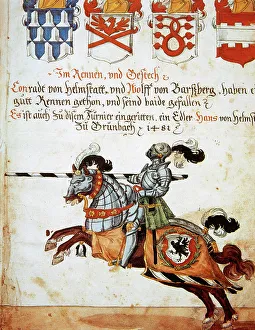 Im Rennen, und Gestech
Conradt von Helmstatt, und Wolff von Barßberg, haben ein
gutt Rennen gethon, und seind baide gefallen
Es ist auch Zu disem Turnier eingeritten, ein Edler Hans von Helmst
Zu Grünbach 1481